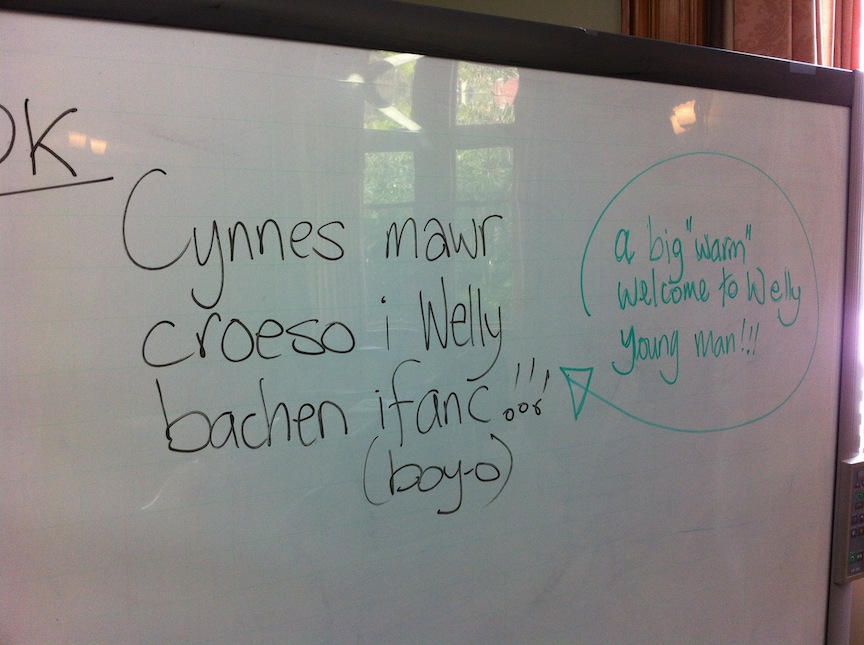 OK
Cynnes mawr
croeso i Welly
bachen ifanc!!!
(boy-o)
a big "warm"
welcome to Welly
young man!!!